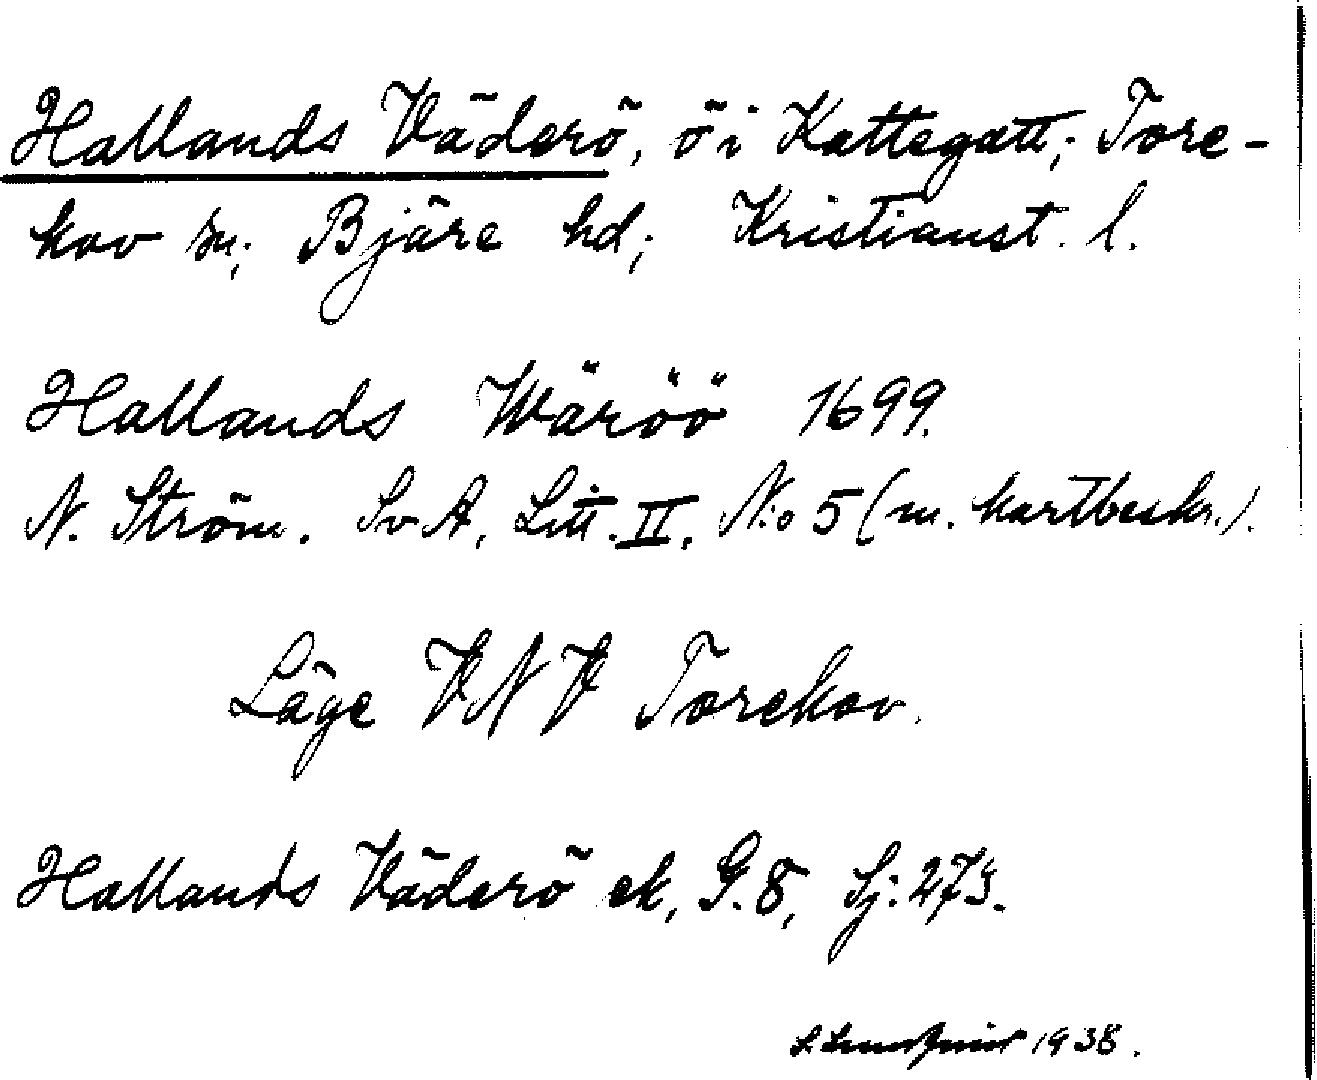 Hallands Väderö, ö i Kattegatt; Tore-
kov sn; Bjäre hd; Kristianst. l.
Hallands Wäröö 1699.
N. Ström. SvA, Litt. II, N:o 5 (m. kartbeskr.).
Läge VNV Torekov.
Hallands Väderö ek, G. 8, Sj: 273.
1938.